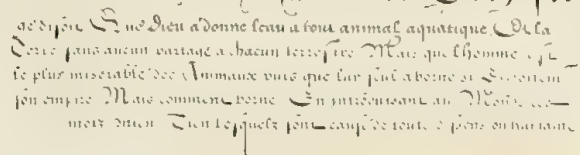 Que Dieu a donne leau a tout animal aquatique Et la
Terre sans aucun partage a chacun terrestre Mais que lhomme est
le plus miserable des Animaux puis que luy seul a borne si
son empire Mais comment borne En introduisant au Monde ces
motz mien Tien lesquelz sont cause de tout